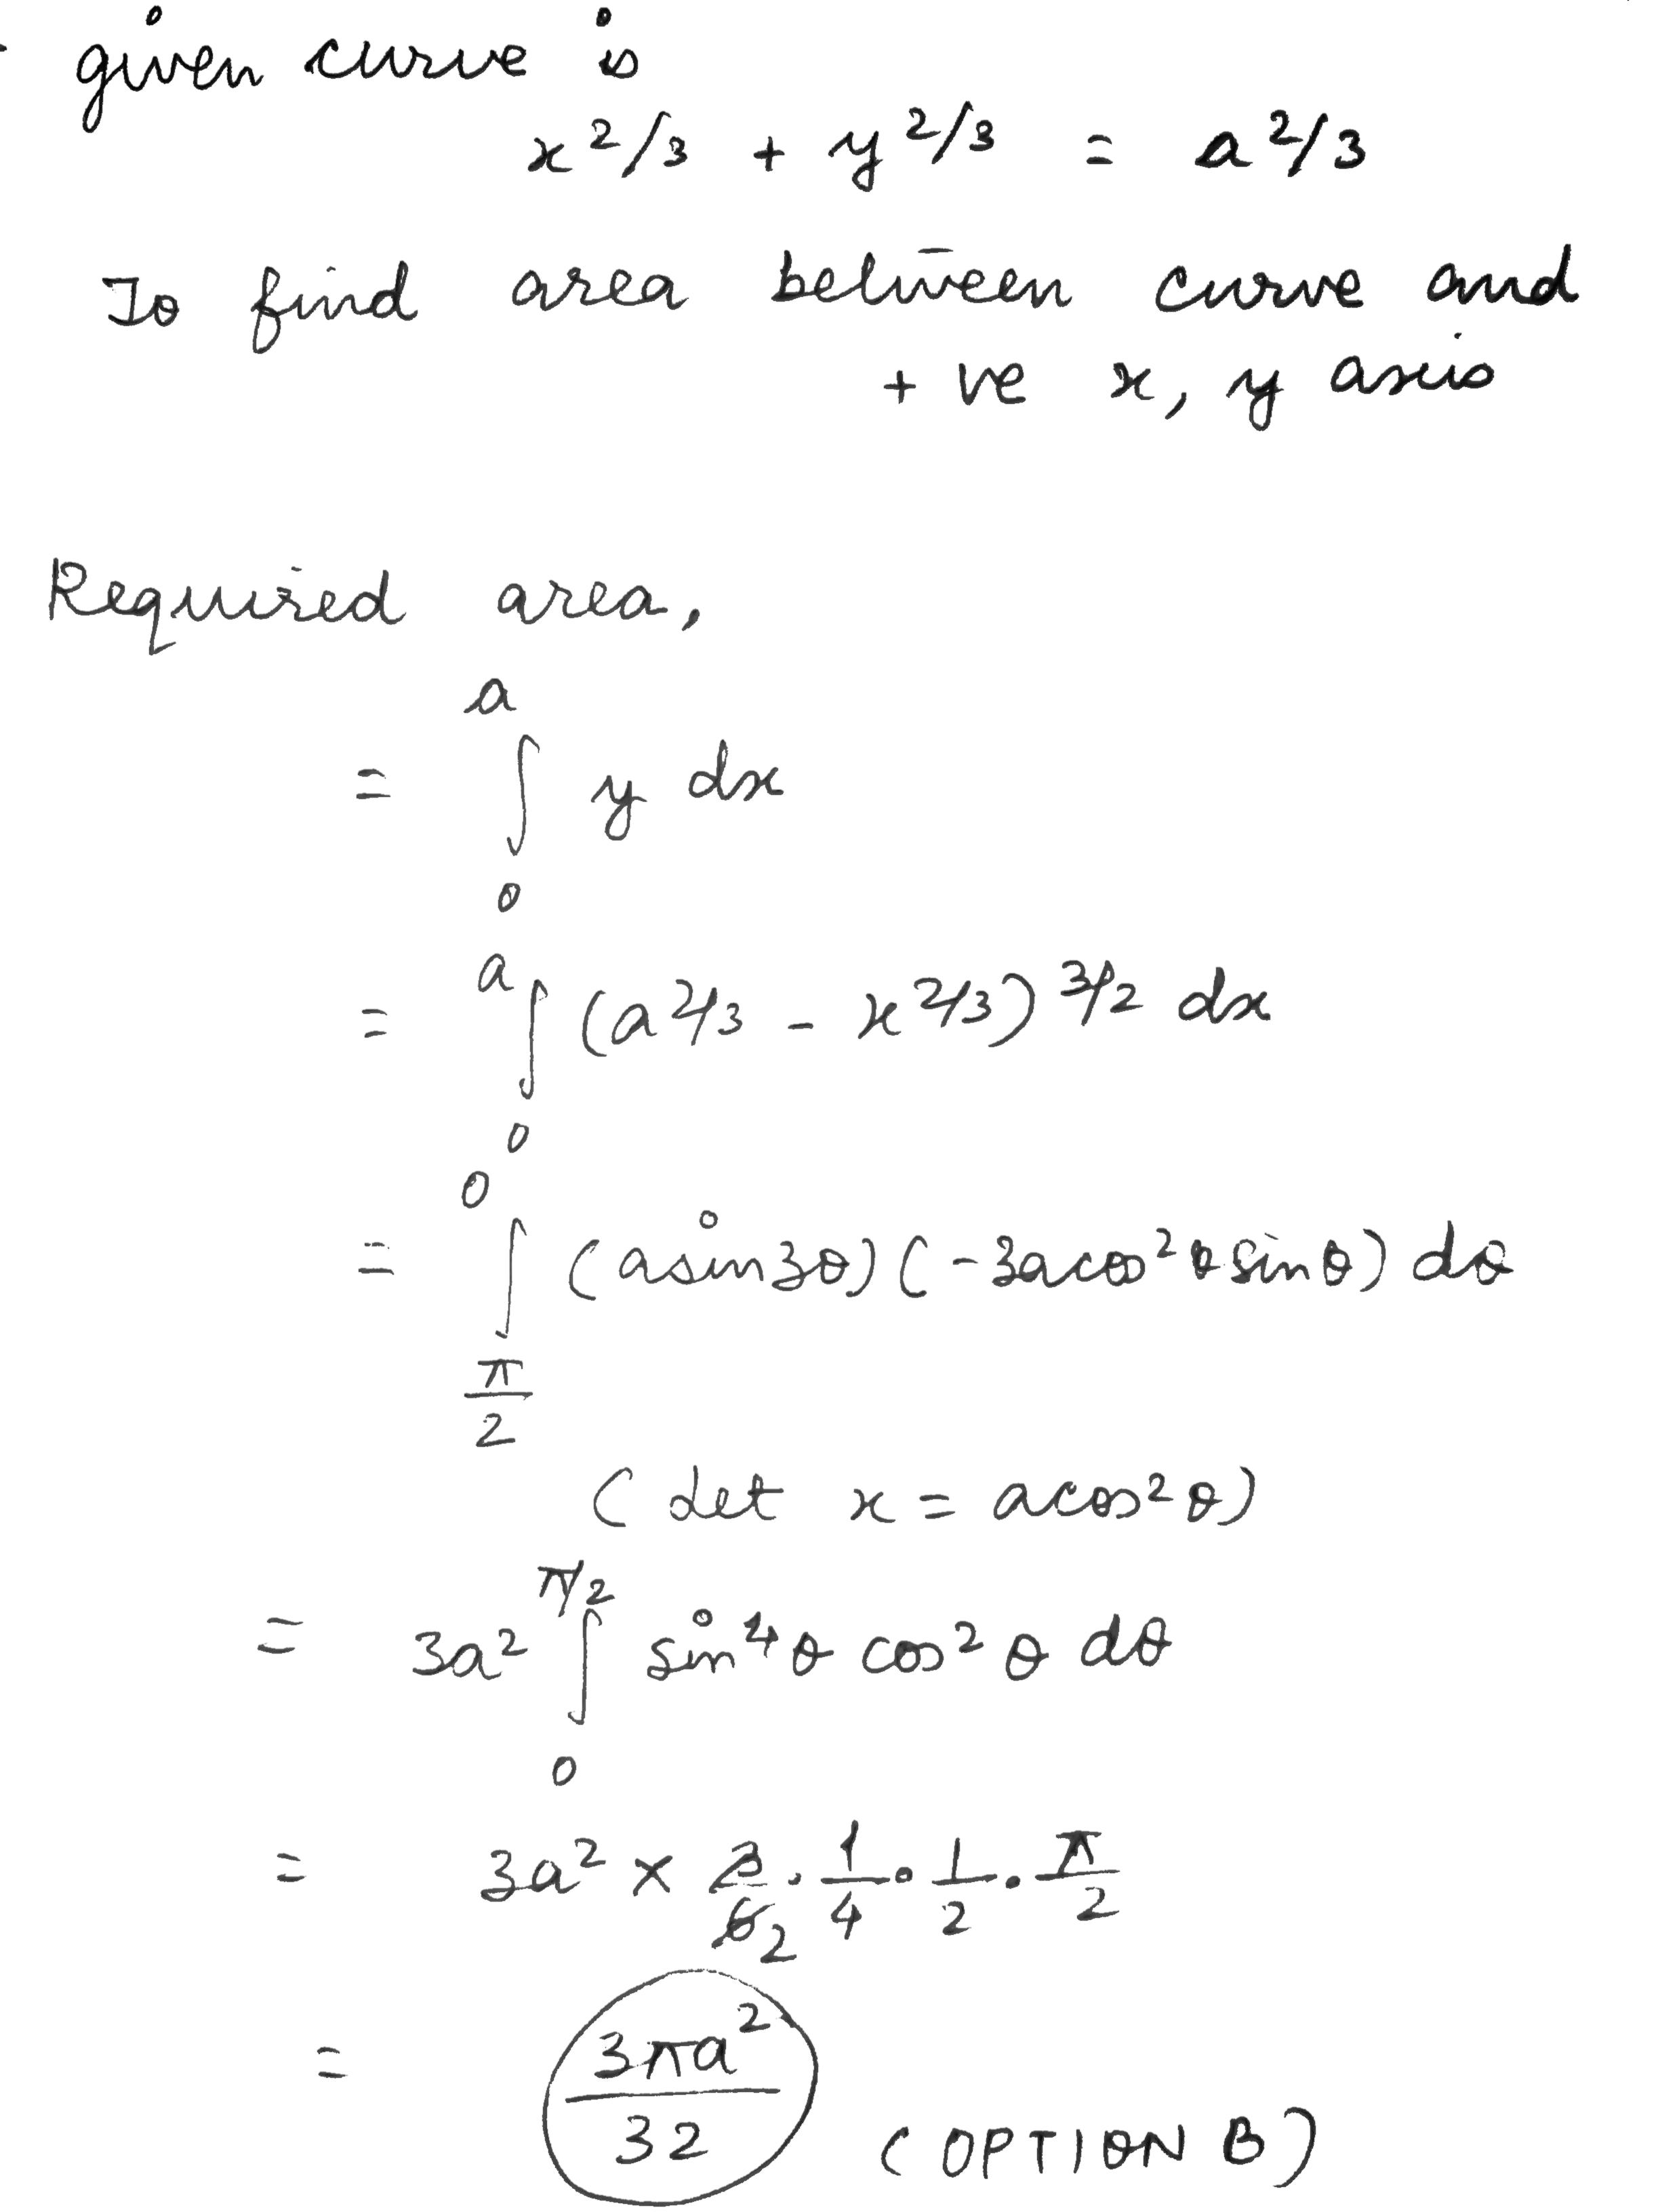 given curve is
x^2/3 + y^2/3 = a^2/3
To find area between curve and
+ve x, y axis
Required area,
= ∫_0^a y dx
= ∫_0^a (a^2/3 - x^2/3)^3/2 dx
= ∫_{π/2}^0 (a sin3θ)(-3a cos^2 θ sinθ) dθ
(Let x = a cos^2 θ)
= 3a^2 ∫_0^{π/2} sin^4 θ cos^2 θ dθ
= 3a^2 × 3/6 2 · 1/4 · 1/2 · π/2
= 3πa^2/32 (OPTION B)